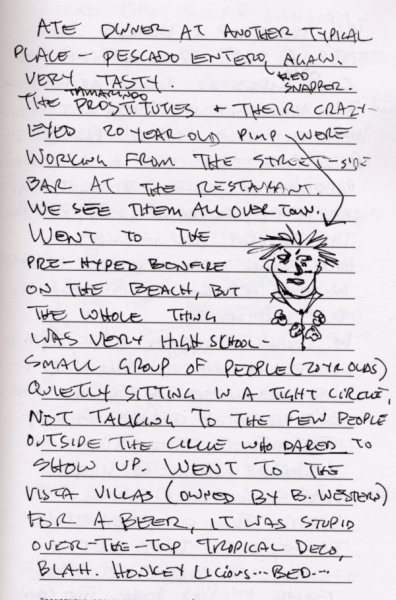 ATE DINNER AT ANOTHER TYPICAL
PLACE - PESCADO ENTERO, AGAIN.
RED
VERY TASTY. SNAPPER.
TAMARINDO
THE PROSTITUTES + THEIR CRAZY-
EYED 20 YEAR OLD PIMP WERE
WORKING FROM THE STREET-SIDE
BAR AT THE RESTAURANT.
WE SEE THEM ALL OVER TOWN.
WENT TO THE
PRE-HYPED BONFIRE
ON THE BEACH, BUT
THE WHOLE THING
WAS VERY HIGH SCHOOL-
SMALL GROUP OF PEOPLE (20 YR OLDS)
QUIETLY SITTING IN A TIGHT CIRCLE,
NOT TALKING TO THE FEW PEOPLE
OUTSIDE THE CIRCLE WHO DARED TO
SHOW UP. WENT TO THE
VISTA VILLAS (OWNED BY B. WESTERN)
FOR A BEER, IT WAS STUPID
OVER-THE-TOP TROPICAL DECO,
BLAH. HONKEY LICIOUS... BED...